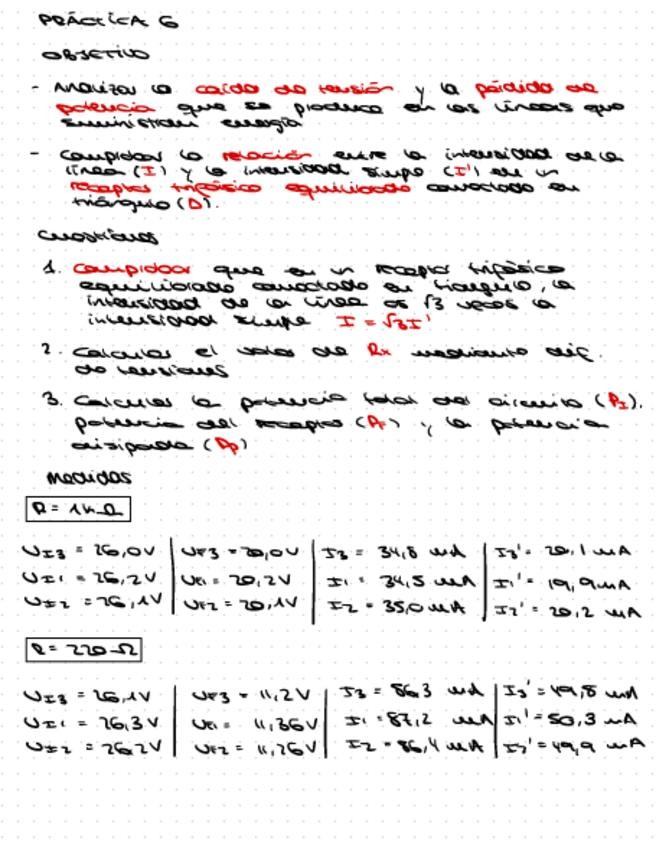 PRÁCTICA 6
OBJETIVO
- Analizar la caída de tensión y la pérdida de
potencia que se produce en las líneas que
suministran energía
- Comprobar la relación entre la intensidad de la
línea (I) y la intensidad simple (I') de un
receptor trifásico equilibrado conectado en
triángulo (Δ).
Cuestiones
1. Comprobar que en un receptor trifásico
equilibrado conectado en triángulo, la
intensidad de la línea es √3 veces la
intensidad simple I = √3 I'
2. Calcular el valor de Rx mediante dif.
de tensiones
3. Calcular la potencia total del circuito (PI),
potencia del receptor (Pr) y la potencia
disipada (Pp)
Medidas
R = 1k Ω
UI3 = 26,0V | UF3 = 20,0V | I3 = 34,8 mA | I3' = 20,1 mA
UI1 = 26,2V | UF1 = 20,2V | I1 = 34,5 mA | I1' = 19,9 mA
UI2 = 26,1V | UF2 = 20,1V | I2 = 35,0 mA | I2' = 20,2 mA
R = 220 Ω
UI3 = 26,1V | UF3 = 11,2V | I3 = 86,3 mA | I3' = 49,8 mA
UI1 = 26,3V | UF1 = 11,36V | I1 = 87,2 mA | I1' = 50,3 mA
UI2 = 26,2V | UF2 = 11,26V | I2 = 86,4 mA | I2' = 49,9 mA